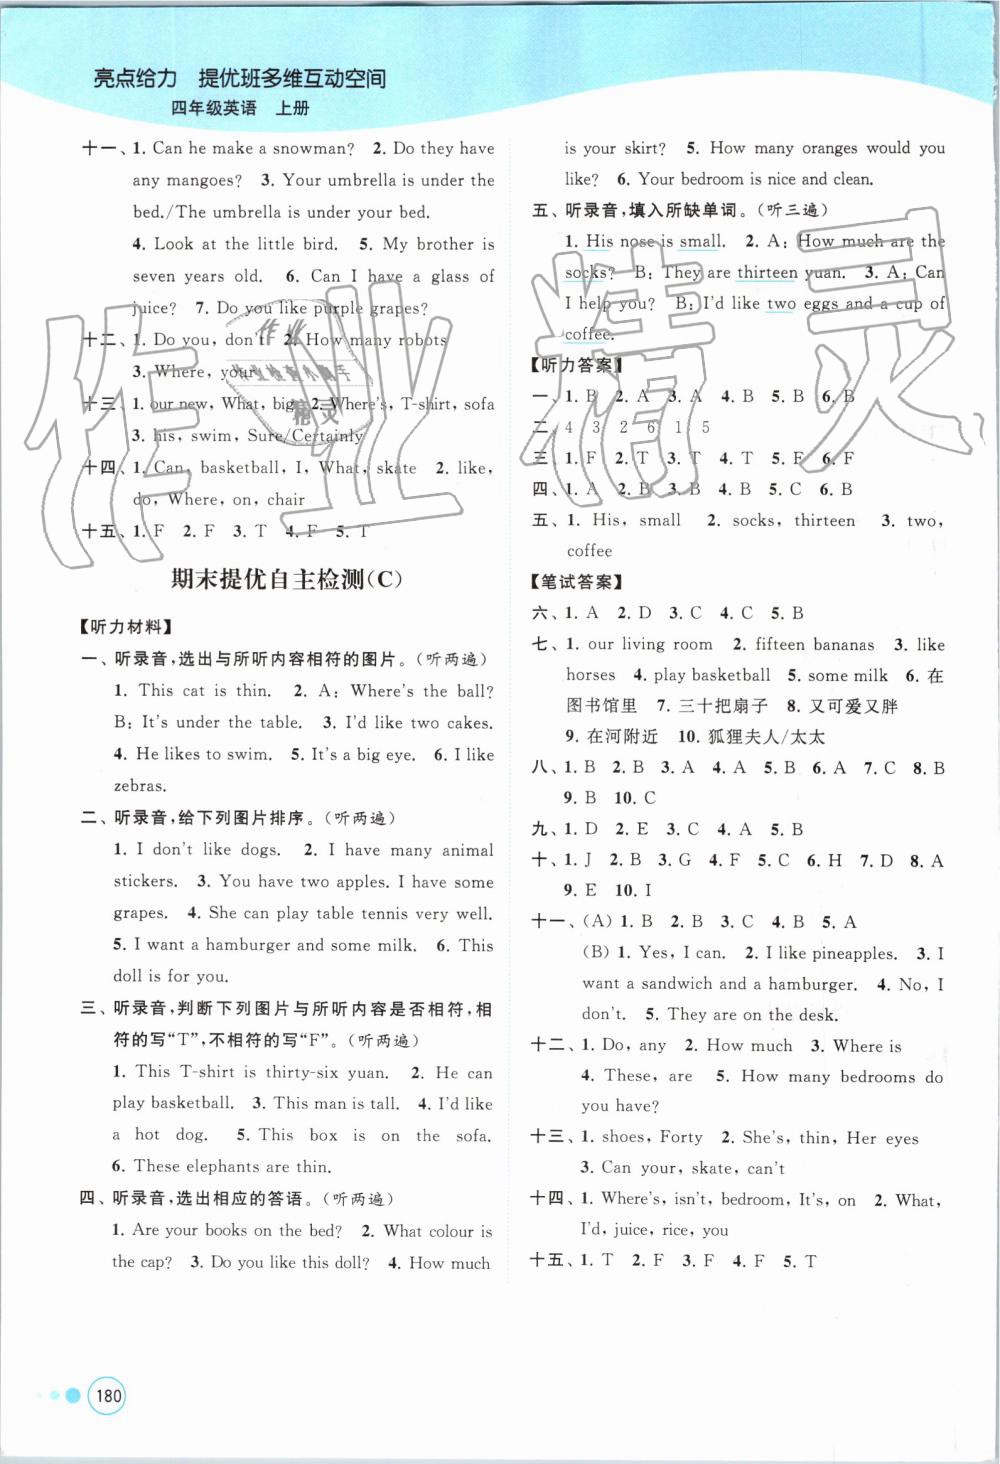 亮点给力 提优班多维互动空间
四年级英语 上册
十一、1. Can he make a snowman? 2. Do they have
any mangoes? 3. Your umbrella is under the
bed./The umbrella is under your bed.
4. Look at the little bird. 5. My brother is
seven years old. 6. Can I have a glass of
juice? 7. Do you like purple grapes?
十二、1. Do you, don't 2. How many robots
3. Where, your
十三、1. our new, What, big 2. Where's, T-shirt, sofa
3. his, swim, Sure/Certainly
十四、1. Can, basketball, I, What, skate 2. like,
do, Where, on, chair
十五、1. F 2. F 3. T 4. F 5. T
期末提优自主检测(C)
【听力材料】
一、听录音,选出与所听内容相符的图片。(听两遍)
1. This cat is thin. 2. A: Where's the ball?
B: It's under the table. 3. I'd like two cakes.
4. He likes to swim. 5. It's a big eye. 6. I like
zebras.
二、听录音,给下列图片排序。(听两遍)
1. I don't like dogs. 2. I have many animal
stickers. 3. You have two apples. I have some
grapes. 4. She can play table tennis very well.
5. I want a hamburger and some milk. 6. This
doll is for you.
三、听录音,判断下列图片与所听内容是否相符,相
符的写“T”,不相符的写“F”。(听两遍)
1. This T-shirt is thirty-six yuan. 2. He can
play basketball. 3. This man is tall. 4. I'd like
a hot dog. 5. This box is on the sofa.
6. These elephants are thin.
四、听录音,选出相应的答语。(听两遍)
1. Are your books on the bed? 2. What colour is
the cap? 3. Do you like this doll? 4. How much
is your skirt? 5. How many oranges would you
like? 6. Your bedroom is nice and clean.
五、听录音,填入所缺单词。(听三遍)
1. His nose is small. 2. A: How much are the
socks? B: They are thirteen yuan. 3. A: Can
I help you? B: I'd like two eggs and a cup of
coffee.
【听力答案】
一、1. B 2. A 3. A 4. B 5. B 6. B
二、4 3 2 6 1 5
三、1. F 2. T 3. T 4. T 5. F 6. F
四、1. A 2. B 3. B 4. B 5. C 6. B
五、1. His, small 2. socks, thirteen 3. two,
coffee
【笔试答案】
六、1. A 2. D 3. C 4. C 5. B
七、1. our living room 2. fifteen bananas 3. like
horses 4. play basketball 5. some milk 6. 在
图书馆里 7. 三十把扇子 8. 又可爱又胖
9. 在河附近 10. 狐狸夫人/太太
八、1. B 2. B 3. A 4. A 5. B 6. A 7. C 8. B
9. B 10. C
九、1. D 2. E 3. C 4. A 5. B
十、1. J 2. B 3. G 4. F 5. C 6. H 7. D 8. A
9. E 10. I
十一、(A) 1. B 2. B 3. C 4. B 5. A
(B) 1. Yes, I can. 2. I like pineapples. 3. I
want a sandwich and a hamburger. 4. No, I
don't. 5. They are on the desk.
十二、1. Do, any 2. How much 3. Where is
4. These, are 5. How many bedrooms do
you have?
十三、1. shoes, Forty 2. She's, thin, Her eyes
3. Can your, skate, can't
十四、1. Where's, isn't, bedroom, It's, on 2. What,
I'd, juice, rice, you
十五、1. T 2. F 3. F 4. F 5. T
180
作业精灵
作业
作业检查小助手
精灵